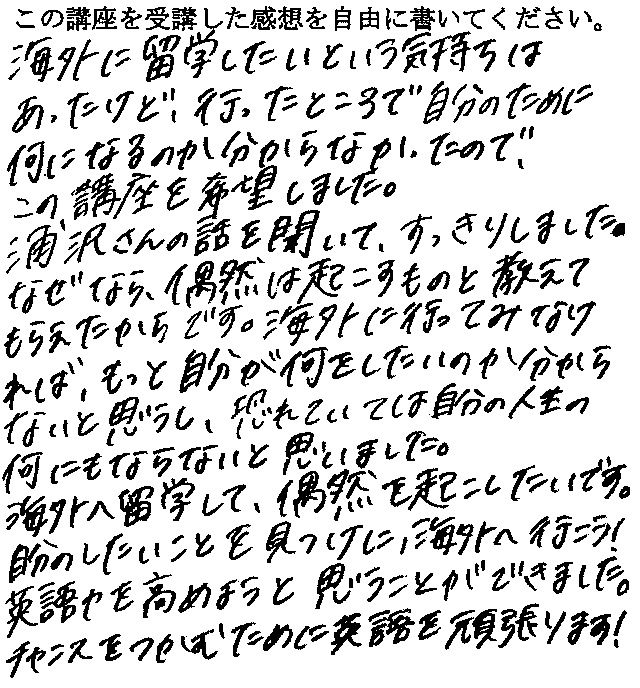 この講座を受講した感想を自由に書いてください。
海外に留学したいという気持ちは
あったけど、行ったところで自分のために
何になるのか分からなかったので、
この講座を希望しました。
浦沢さんの話を聞いて、すっきりしました。
なぜなら、偶然は起こすものと教えて
もらえたからです。海外に行ってみなけ
れば、もっと自分が何をしたいのか分から
ないと思うし、恐れていては自分の人生の
何にもならないと思いました。
海外へ留学して、偶然を起こしたいです。
自分のしたいことを見つけに、海外へ行こう!
英語力を高めようと思うことができました。
チャンスをつかむために英語を頑張ります!